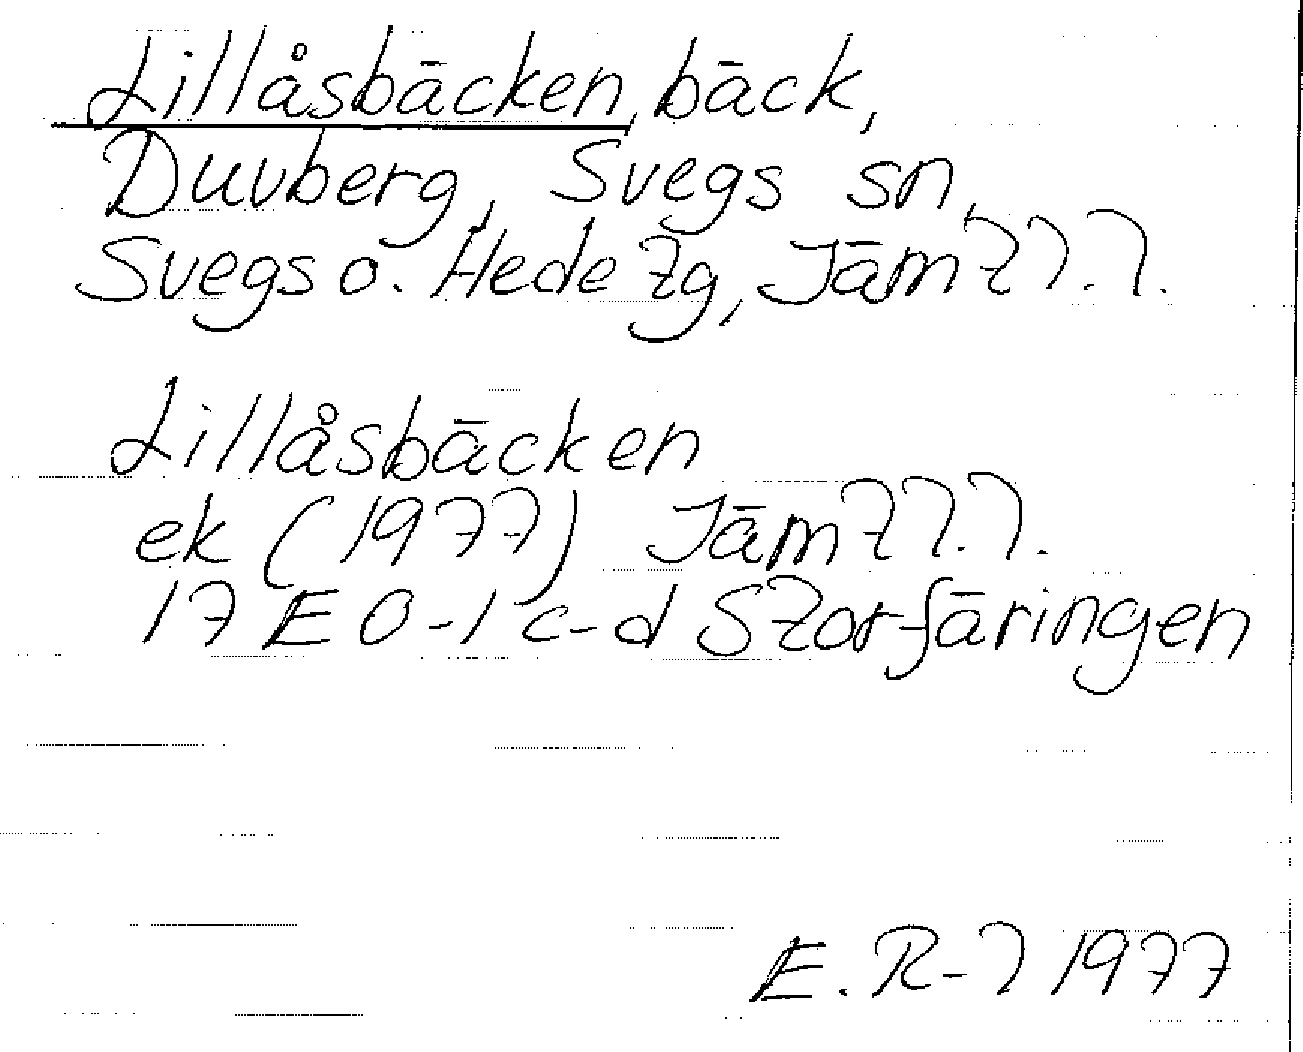 Lillåsbäcken, bäck,
Duvberg, Svegs sn,
Svegs o. Hede tg, Jämtl. l.
Lillåsbäcken
ek (1977) Jämtl. l.
17 E 0-1 c-d Storfäringen
E. R-l 1977